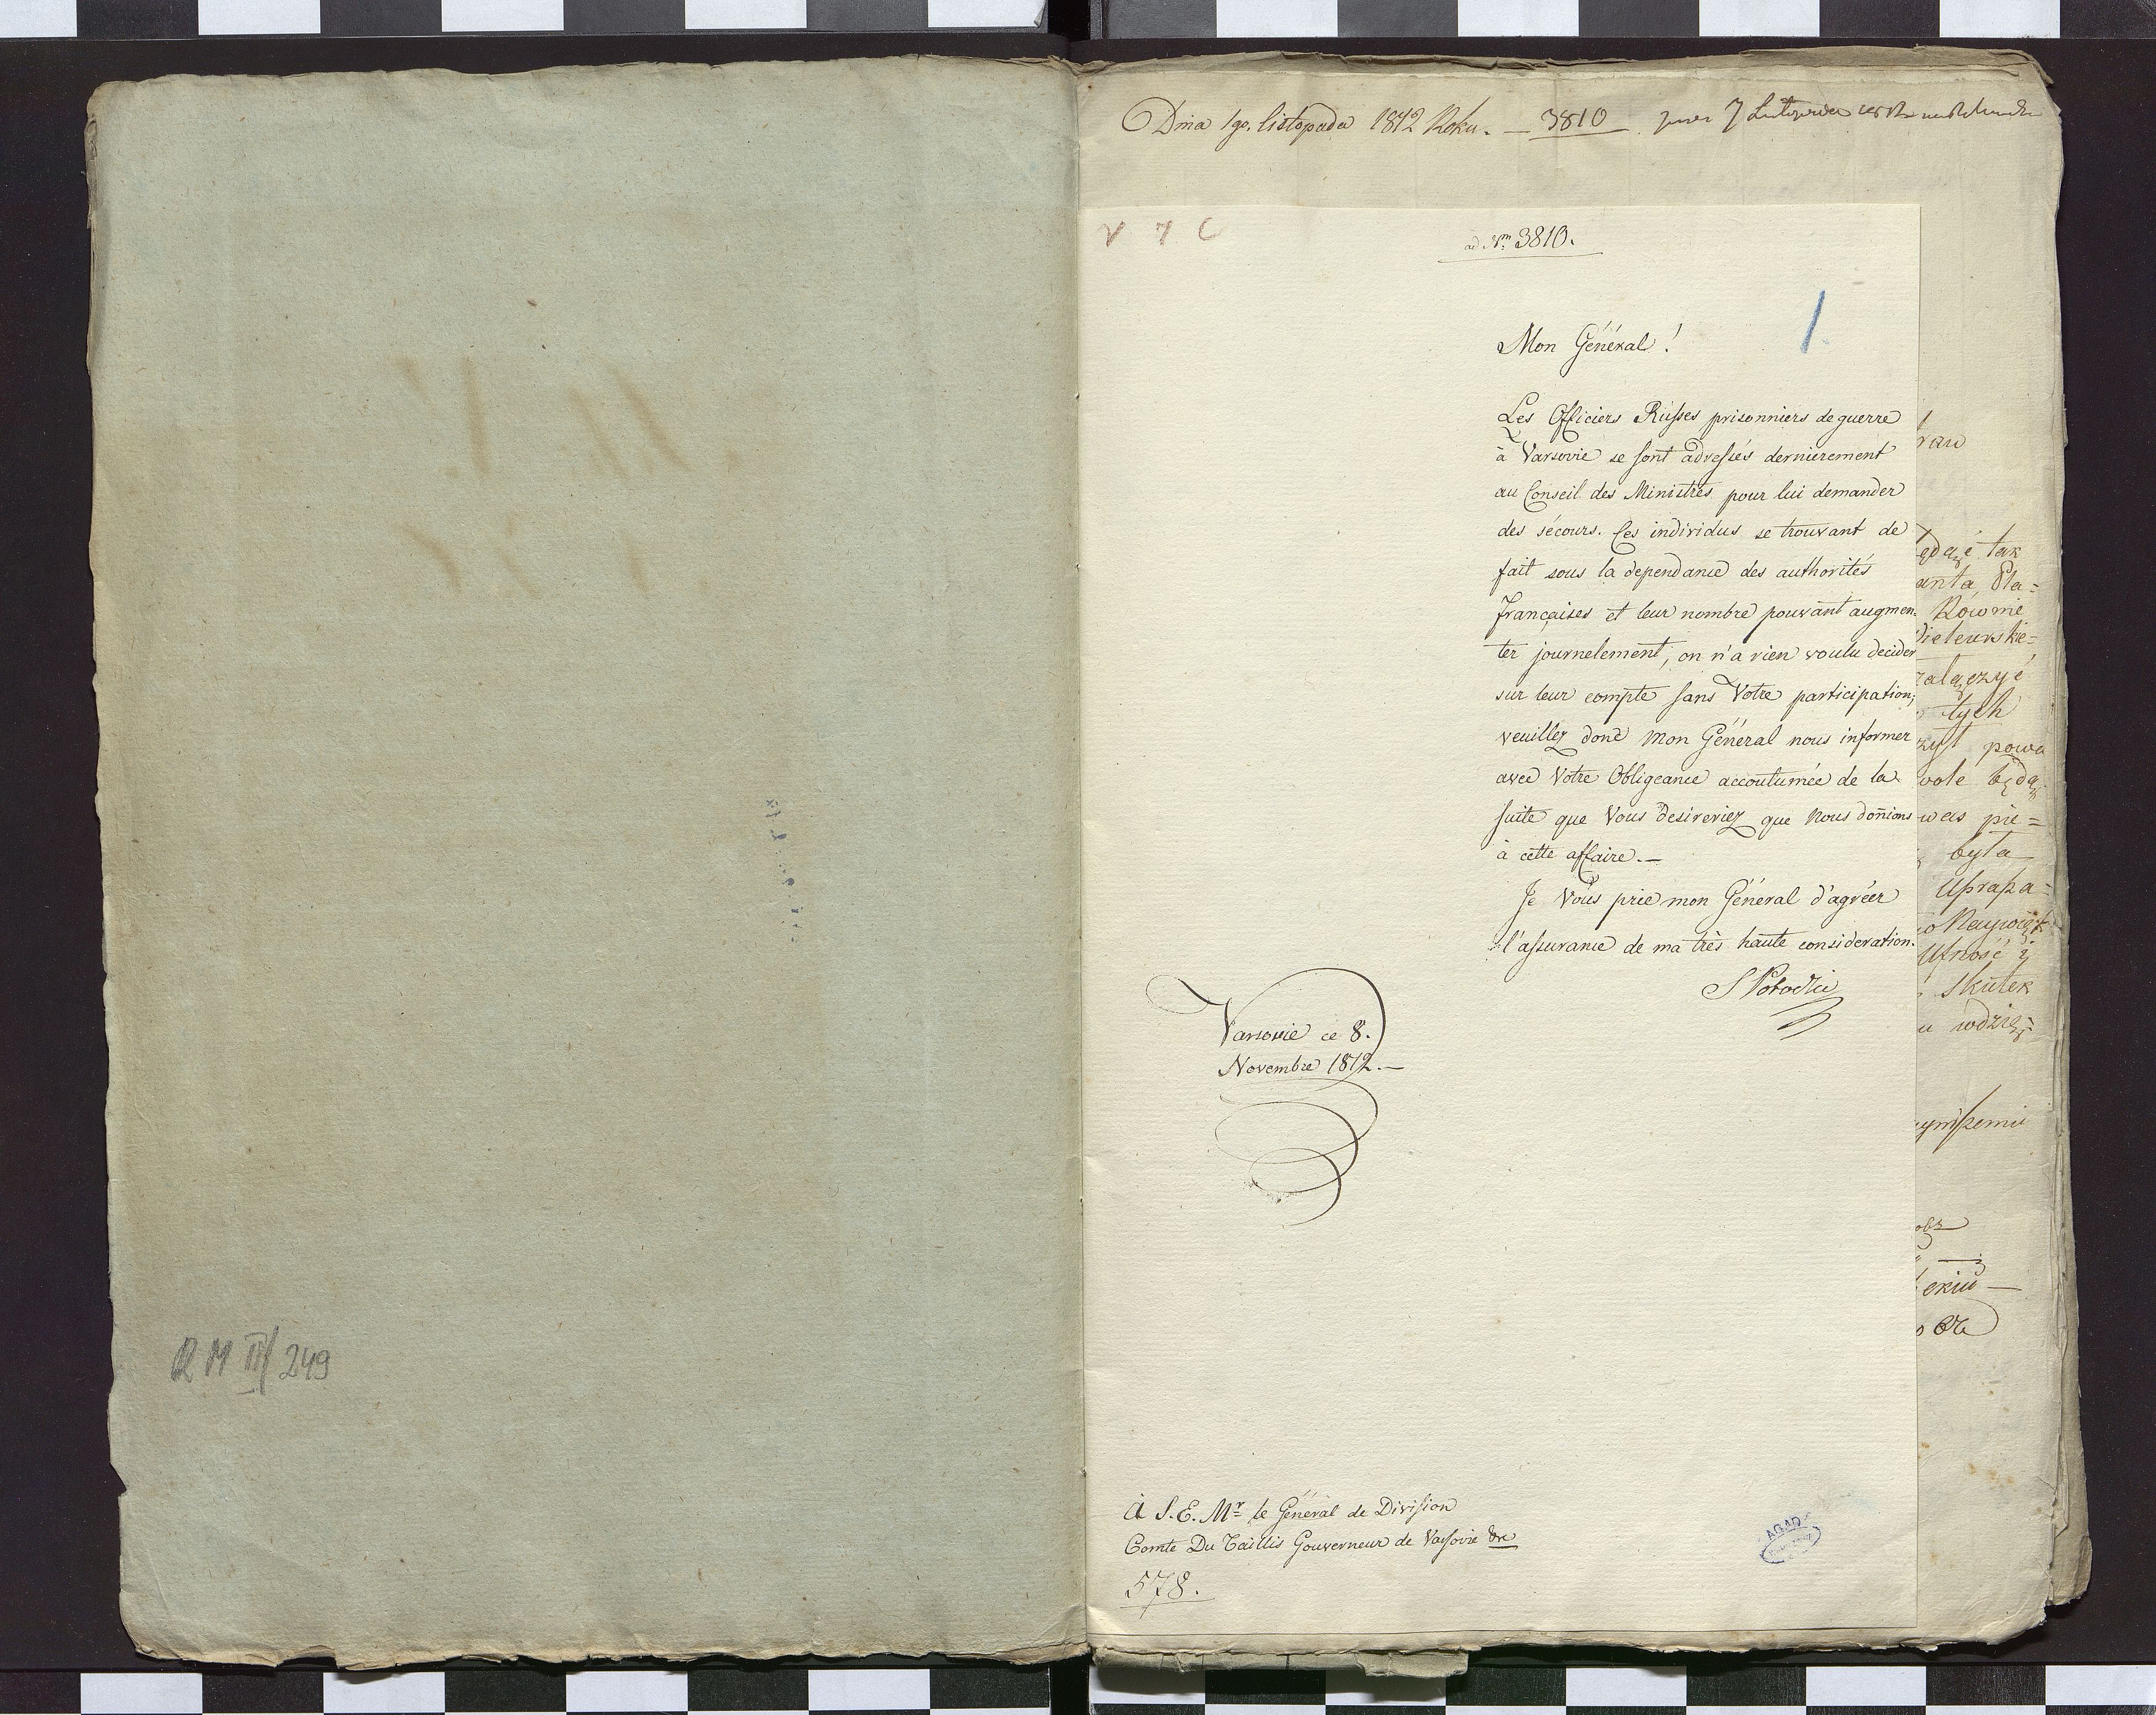 R M III/249
Dnia 1go. listopada 1812 Roku. — 3810
V 7 C
ad Nm 3810.
1
Mon Général!
Les Officiers Russes prisonniers de guerre
à Varsovie se sont adressés dernierement
au Conseil des Ministres pour lui demander
des sécours. Ces individus se trouvant de
fait sous la dependance des authorités
françaises et leur nombre pouvant augmen-
ter journelement, on n'a rien voulu decider
sur leur compte sans Votre participation;
veuillez donc mon Général nous informer
avec Votre Obligeance accoutumée de la
suite que Vous desireriez que nous doñions
à cette affaire.—
Je Vous prie mon Général d'agréer
l'assurance de ma très haute consideration.
S Potocki
Varsovie ce 8.
Novembre 1812.—
À S. E. Mr le Général de Division
Comte Du Taillis Gouverneur de Varsovie &re
578.
AGAD
rau
ędąć tak
anta, Pla=
Rownie
załączyć
tych
powa
będą
was pie=
była
Ufność i
Skutek
u wdzię